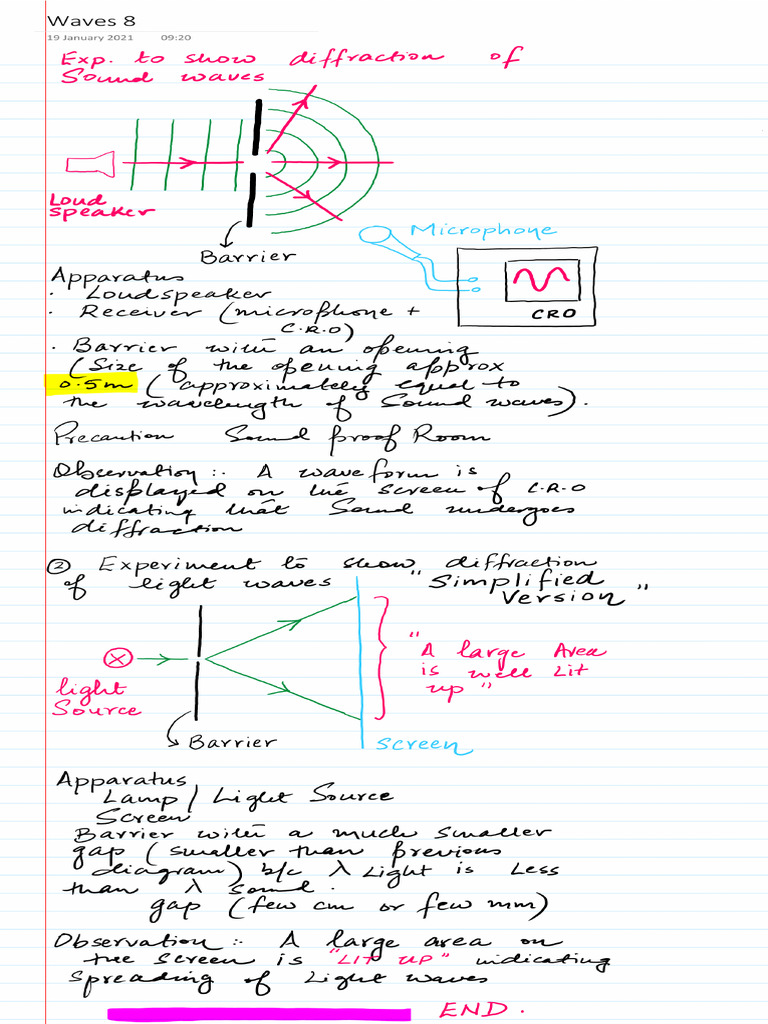 Waves 8
19 January 2021 09:20
Exp. to show diffraction of
Sound waves
Loud
speaker
Barrier
Microphone
CRO
Apparatus
· Loudspeaker
· Receiver (microphone +
C.R.O)
· Barrier with an opening
(Size of the opening approx
0.5m (approximately equal to
the wavelength of Sound waves).
Precaution Sound proof Room
Observation :- A waveform is
displayed on the screen of C.R.O
indicating that Sound undergoes
diffraction
② Experiment to show diffraction
of light waves "Simplified
Version"
light
Source
Barrier
screen
"A large Area
is well Lit
up"
Apparatus
Lamp / Light Source
Screen
Barrier with a much smaller
gap (smaller than previous
diagram) b/c λ Light is Less
than λ sound.
gap (few cm or few mm)
Observation :- A large area on
the screen is "LIT UP" indicating
Spreading of Light waves
END.